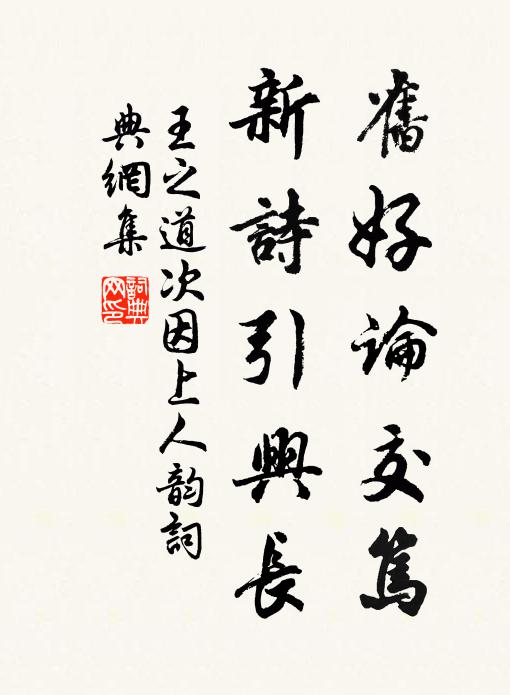 舊好論交篤
新詩引興長
王之道次因上人韵詞
典網集
詞典
网印